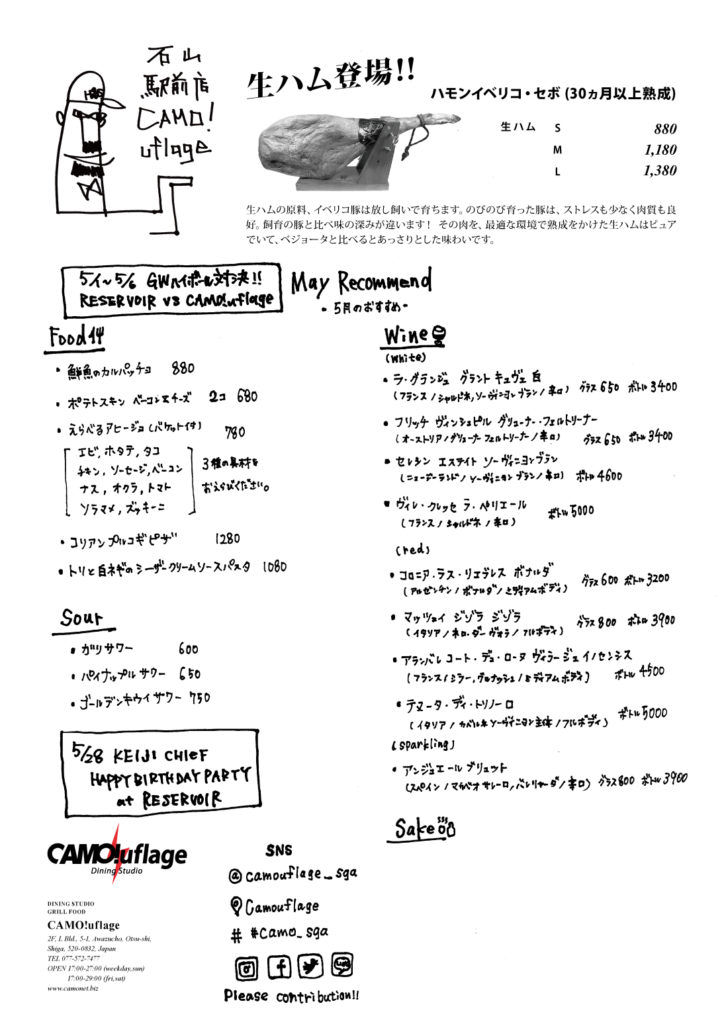 石山
駅前店
CAMO!
uflage
生ハム登場!!
ハモンイベリコ・セボ (30ヵ月以上熟成)
生ハム S 880
M 1,180
L 1,380
生ハムの原料、イベリコ豚は放し飼いで育ちます。のびのび育った豚は、ストレスも少なく肉質も良
好。飼育の豚と比べ味の深みが違います! その肉を、最適な環境で熟成をかけた生ハムはピュア
でいて、ベジョータと比べるとあっさりとした味わいです。
5/1~5/6 GWハイボール対決!!
RESERVOIR VS CAMO!uflage
May Recommend
・5月のおすすめ・
Food
・鮮魚のカルパッチョ 880
・ポテトスキン ベーコンエチーズ 2コ 680
・えらべるアヒージョ(バケット付) 780
エビ, ホタテ, タコ
チキン, ソーセージ, ベーコン
ナス, オクラ, トマト
ソラマメ, ズッキーニ
3種の具材を
おえらびください。
・コリアンプルコギピザ 1280
・トリと白ネギのシーザークリームソースパスタ 1080
Sour
・ガリサワー 600
・パイナップルサワー 650
・ゴールデンキウイサワー 750
5/28 KEIJI CHIEF
HAPPY BIRTHDAY PARTY
at RESERVOIR
Wine
(white)
・ラ・グランジュ グラント キュヴェ 白
(フランス/シャルドネ,ソーヴィニヨンブラン/辛口) グラス650 ボトル3400
・フリッチ ヴィンシュピル グリューナー・フェルトリーナー
(オーストリア/グリューナーフェルトリーナー/辛口) グラス650 ボトル3400
・セレシン エステイト ソーヴィニヨンブラン
(ニュージーランド/ソーヴィニヨンブラン/辛口) ボトル4600
・ヴィレ・クレッセ ラ・ペリエール
(フランス/シャルドネ/辛口) ボトル5000
(red)
・コロニア・ラス・リエブレス ボナルダ
(アルゼンチン/ボナルダ/ミディアムボディ) グラス600 ボトル3200
・マッツェイ ジゾラ ジゾラ
(イタリア/ネロ・ダーヴォラ/フルボディ) グラス800 ボトル3900
・アランパレ コート・デュ・ローヌ ヴィラージュ イノセンシス
(フランス/シラー,グルナッシュ/ミディアムボディ) ボトル4500
・テヌータ・ディ・トリノーロ
(イタリア/カベルネソーヴィニヨン主体/フルボディ) ボトル5000
(sparkling)
・アンジュエール ブリュット
(スペイン/マカベオ,チャレーロ,パレリャーダ/辛口) グラス800 ボトル3900
Sake
CAMO!uflage
Dining Studio
DINING STUDIO
GRILL FOOD
CAMO!uflage
2F, I. Bld., 5-1, Awazucho, Otsu-shi,
Shiga, 520-0832, Japan
TEL 077-572-7477
OPEN 17:00-27:00 (weekday,sun)
17:00-29:00 (fri,sat)
www.camonet.biz
SNS
@camouflage_sga
Camouflage
# #camo_sga
Please contribution!!